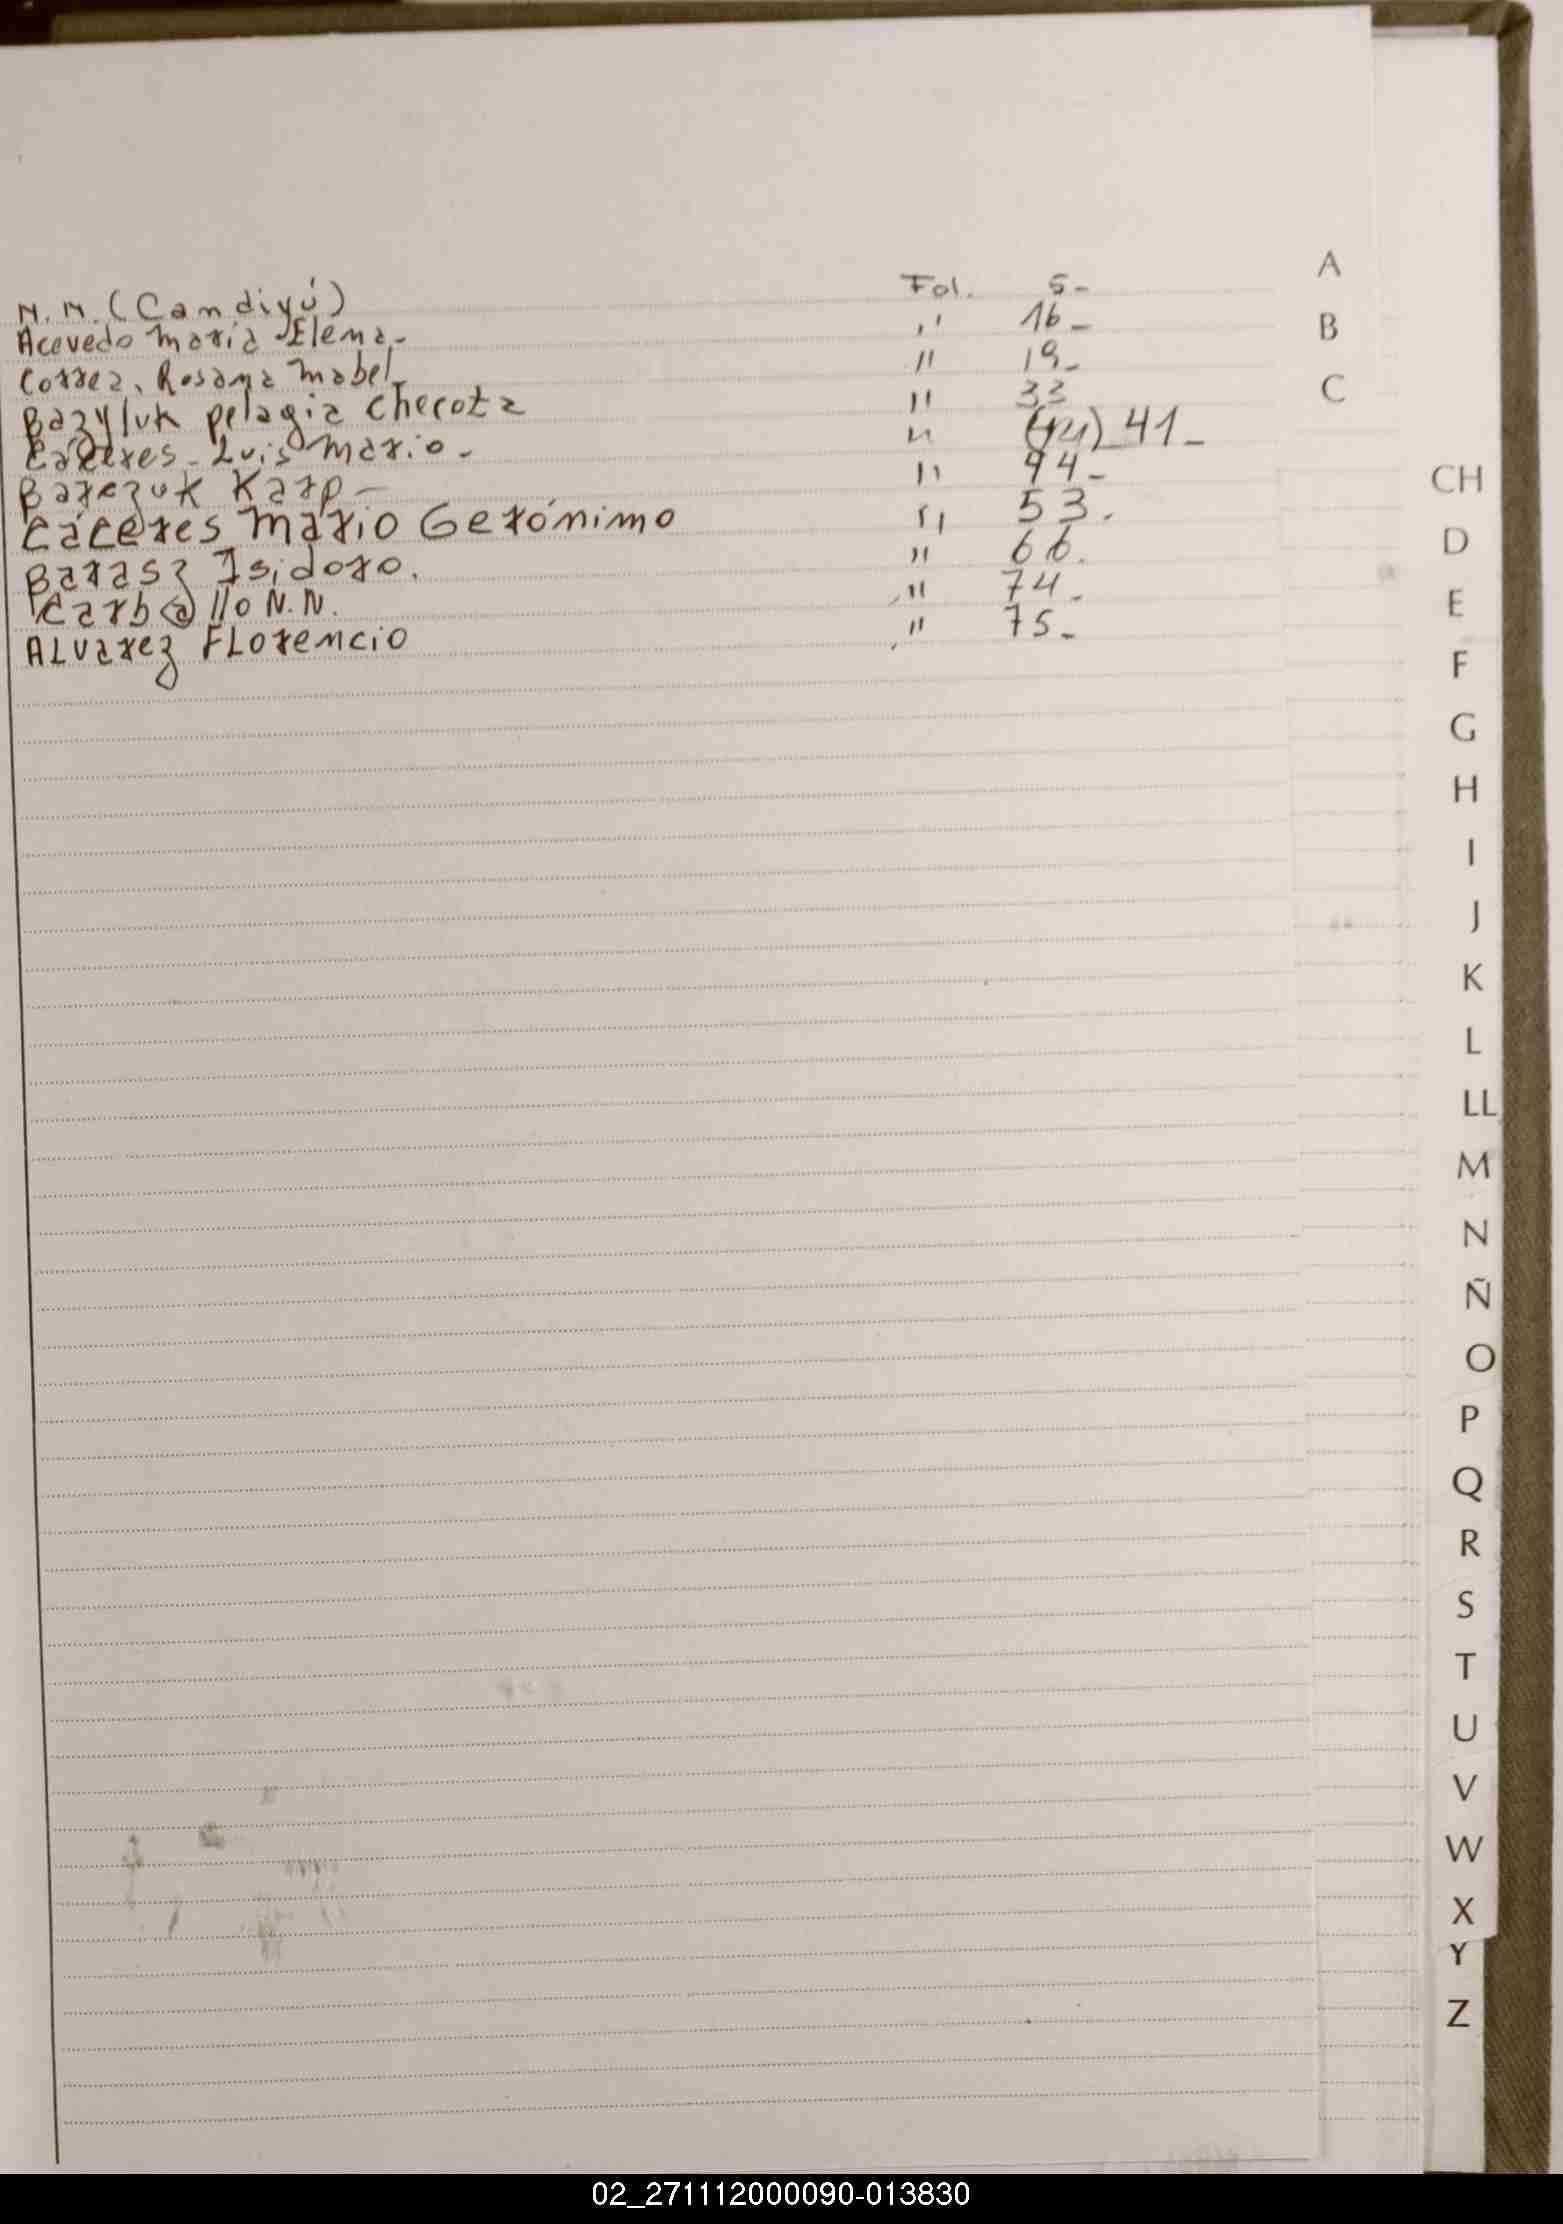 N.N. (Candiyú) Fol. 5-
Acevedo María Elena.- " 16-
Correa, Rosana Mabel- " 19-
Bazyluk pelagia checota " 33
Cáceres - Luis Mario.- " 41-
Barczuk Karp- " 44-
Cáceres Mario Gerónimo " 53.
Barasz Isidoro. " 66.
Carballo N.N. " 74-
Alvarez Florencio " 75-
A
B
C
CH
D
E
F
G
H
I
J
K
L
LL
M
N
Ñ
O
P
Q
R
S
T
U
V
W
X
Y
Z
02_271112000090-013830